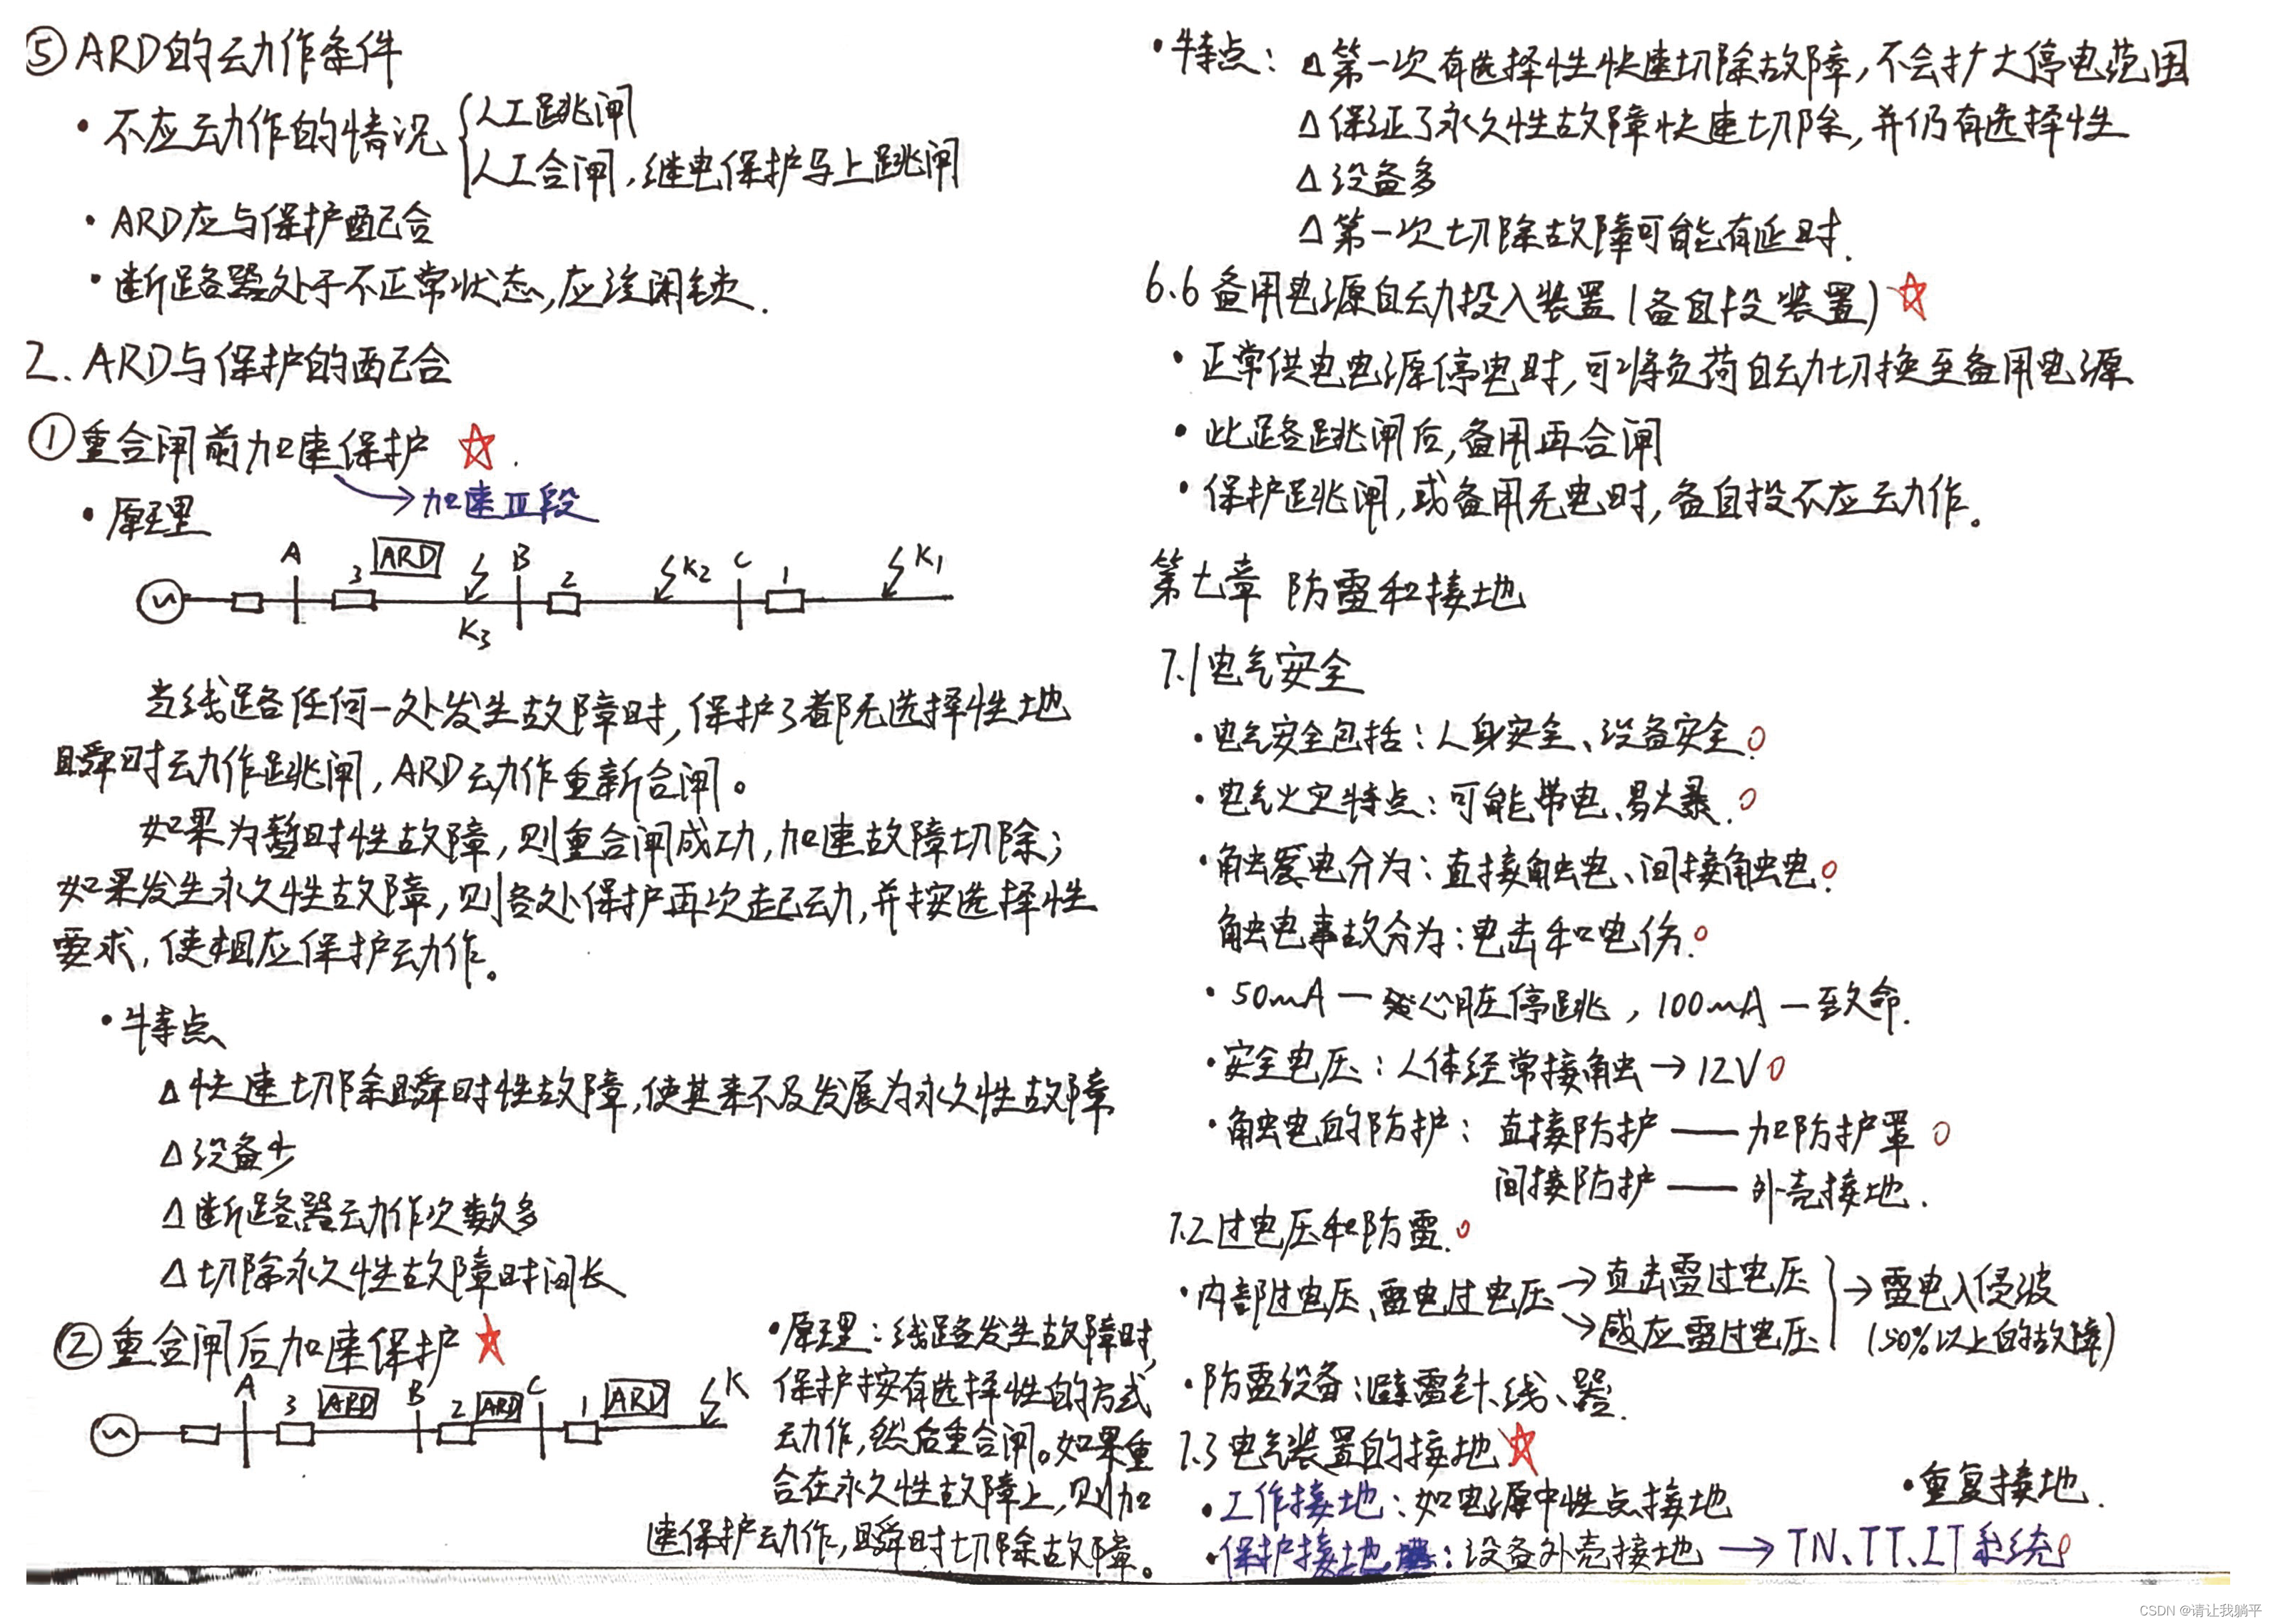 ⑤ARD的动作条件
·不应动作的情况{人工跳闸
人工合闸,继电保护马上跳闸
·ARD应与保护配合
·断路器处于不正常状态,应该闭锁.
2.ARD与保护的配合
①重合闸前加速保护 ☆.
→加速Ⅲ段
·原理
A 3 ARD B 2 K2 C 1 K1
K3
当线路任何一处发生故障时,保护3都无选择性地
瞬时动作跳闸,ARD动作重新合闸。
如果为暂时性故障,则重合闸成功,加速故障切除;
如果发生永久性故障,则各处保护再次起动,并按选择性
要求,使相应保护动作。
·特点
△快速切除瞬时性故障,使其来不及发展为永久性故障
△设备少
△断路器动作次数多
△切除永久性故障时间长
②重合闸后加速保护★
A 3 ARD B 2 ARD C 1 ARD K
·原理:线路发生故障时,
保护按有选择性的方式
动作,然后重合闸。如果重
合在永久性故障上,则加
速保护动作,瞬时切除故障。
·特点:△第一次有选择性快速切除故障,不会扩大停电范围
△保证了永久性故障快速切除,并仍有选择性
△设备多
△第一次切除故障可能有延时.
6.6备用电源自动投入装置(备自投装置)☆
·正常供电电源停电时,可将负荷自动切换至备用电源
·此路跳闸后,备用再合闸
·保护跳闸,或备用无电时,备自投不应动作。
第七章 防雷和接地
7.1电气安全
·电气安全包括:人身安全、设备安全.
·电气火灾特点:可能带电、易爆.
·触电分为:直接触电、间接触电.
触电事故分为:电击和电伤.
·50mA—心脏停跳,100mA—致命.
·安全电压:人体经常接触→12V
·触电的防护:直接防护——加防护罩
间接防护——外壳接地.
7.2过电压和防雷.
·内部过电压、雷电过电压→直击雷过电压}→雷电入侵波
→感应雷过电压 (50%以上的故障)
·防雷设备:避雷针、线、器.
7.3电气装置的接地☆
·工作接地:如电源中性点接地 ·重复接地.
·保护接地:设备外壳接地→TN、TT、IT系统
CSDN @请让我躺平